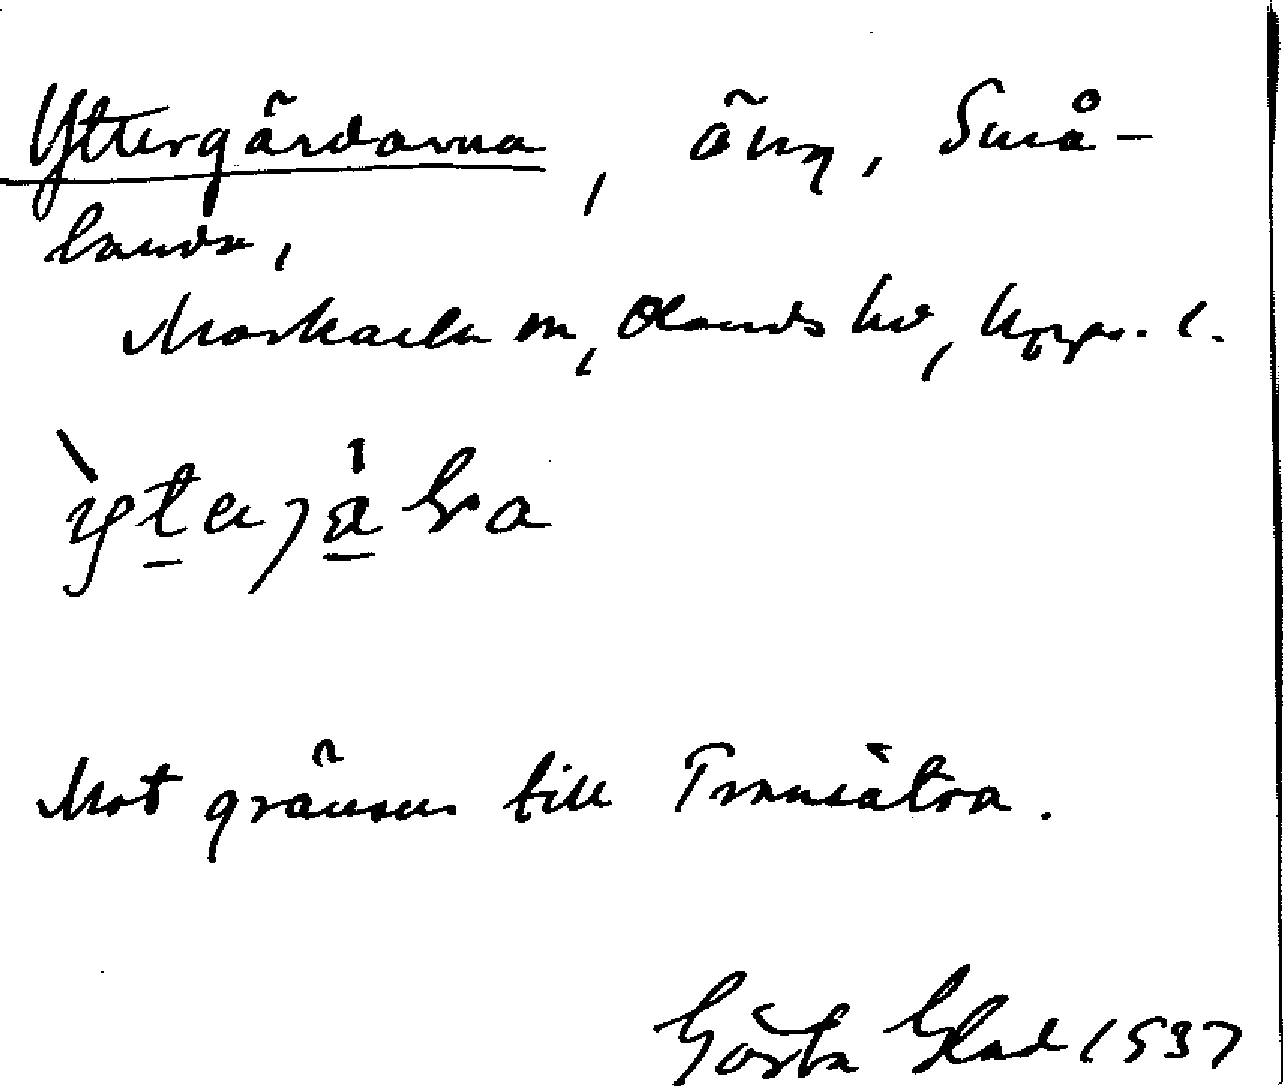 Yttergärdarna, äng, Små-
landa,
Morkarla sn, Olands hd, Upps. l.
Mot gränsen till Transätra.
Gösta Glad 1937